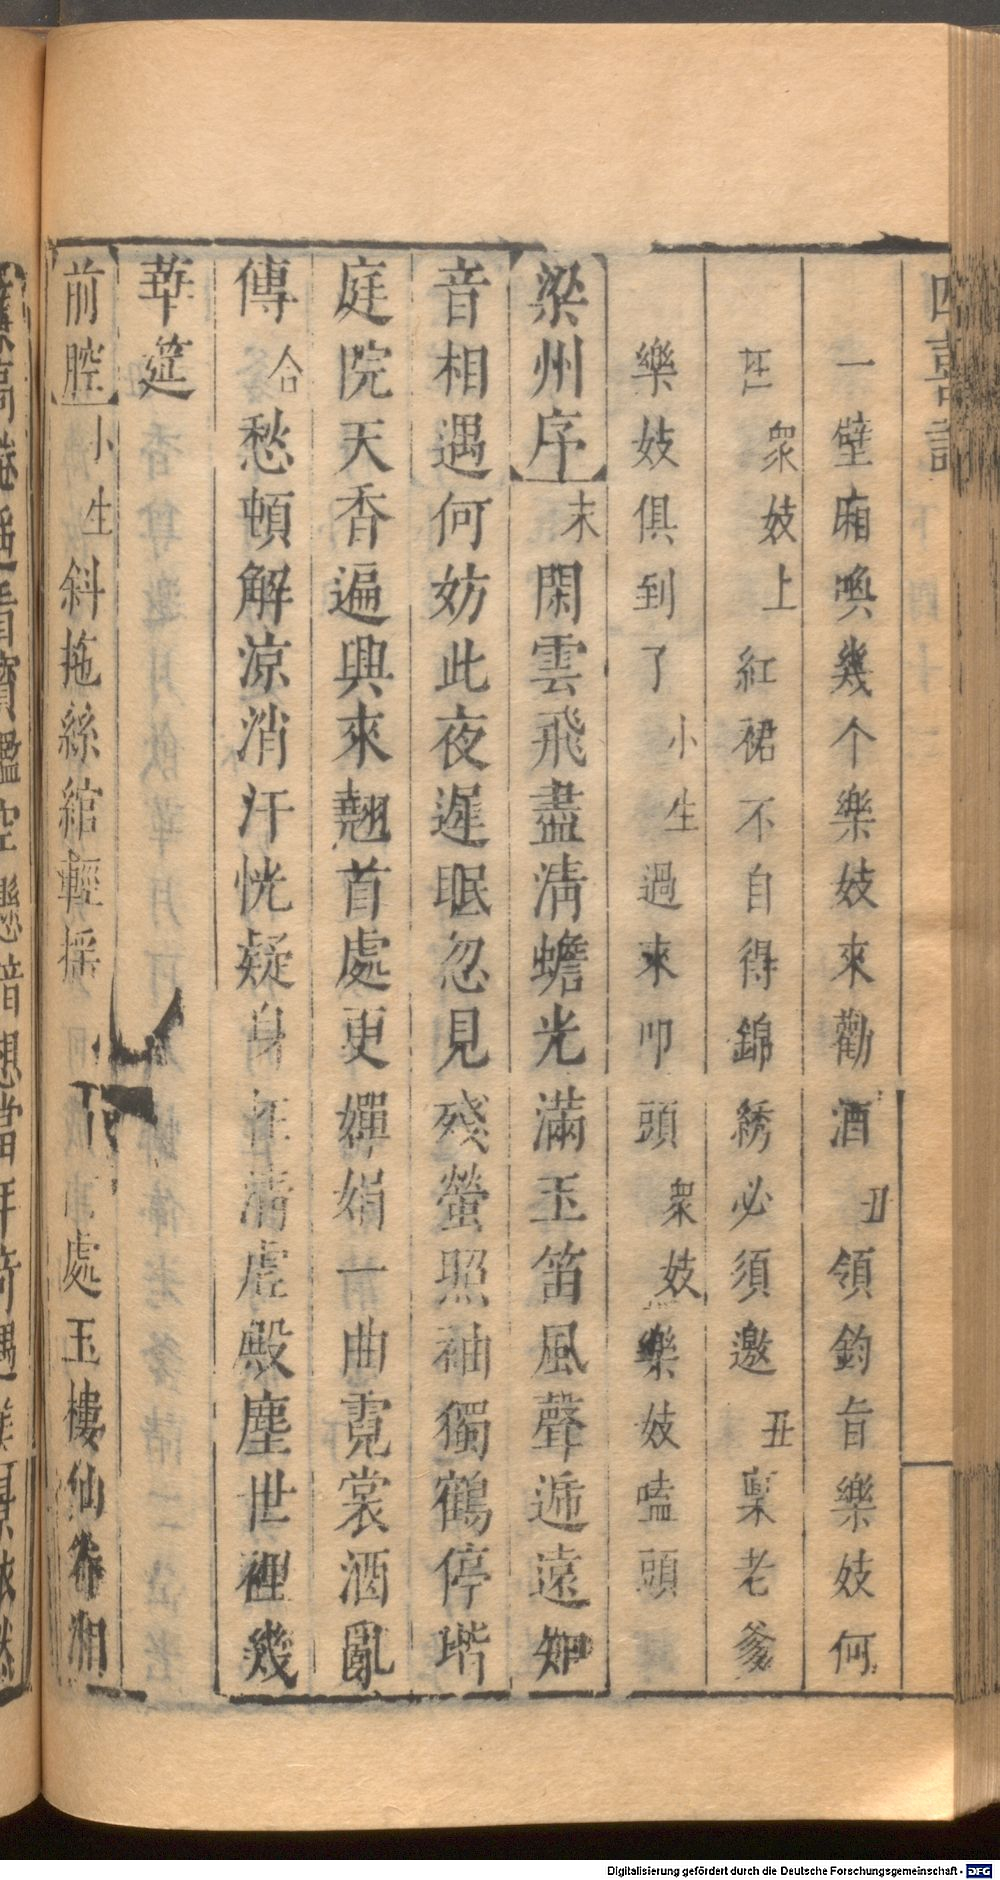 四喜記
一壁廂喚幾个樂妓來勸酒丑領鈞旨樂妓何
在衆妓上紅裙不自得錦綉必須邀丑稟老爹
樂妓俱到了小生過來叩頭衆妓樂妓嗑頭
梁州序末閑雲飛盡淸蟾光滿玉笛風聲遞遠知
音相遇何妨此夜遲眠忽見殘螢照袖獨鶴停堦
庭院天香遍興來翹首處更嬋娟一曲霓裳酒亂
傳合愁頓解涼消汗恍疑身在淸虛殿塵世裡幾
華筵
前腔小生斜拖絲綰輕搖處玉樓仙湘
Digitalisierung gefördert durch die Deutsche Forschungsgemeinschaft - DFG